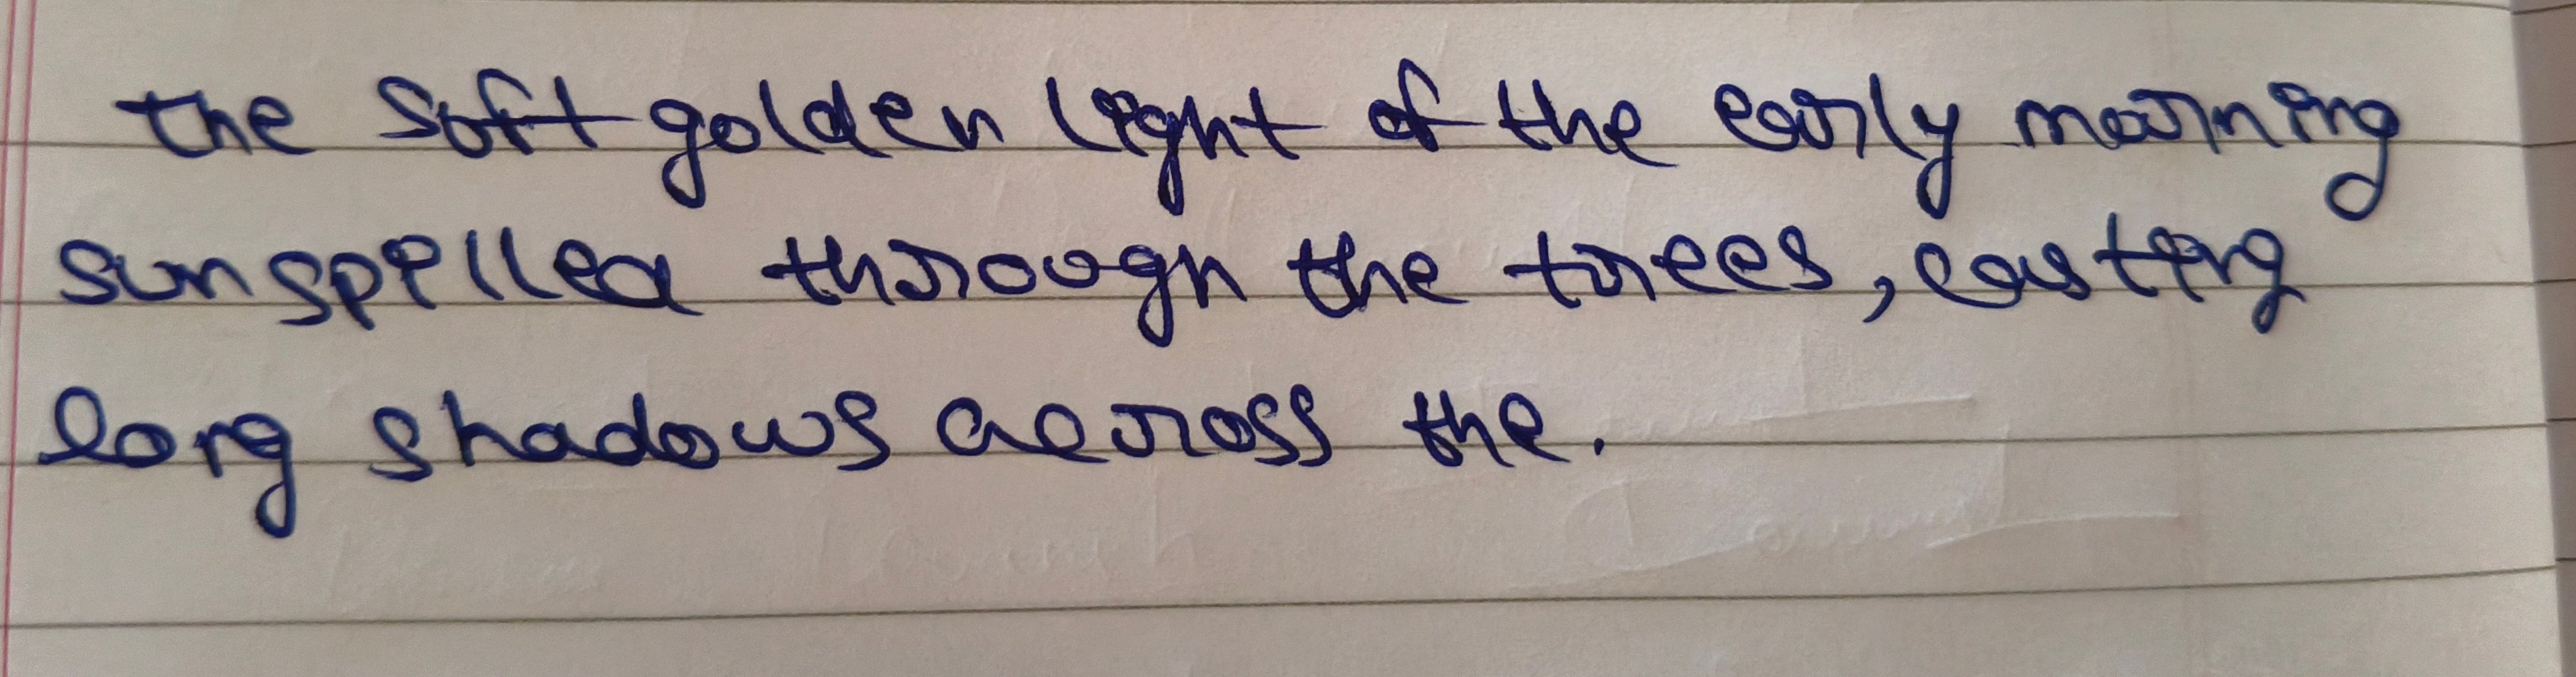 the soft golden light of the early morning
sun spilled through the trees, casting
long shadows across the.